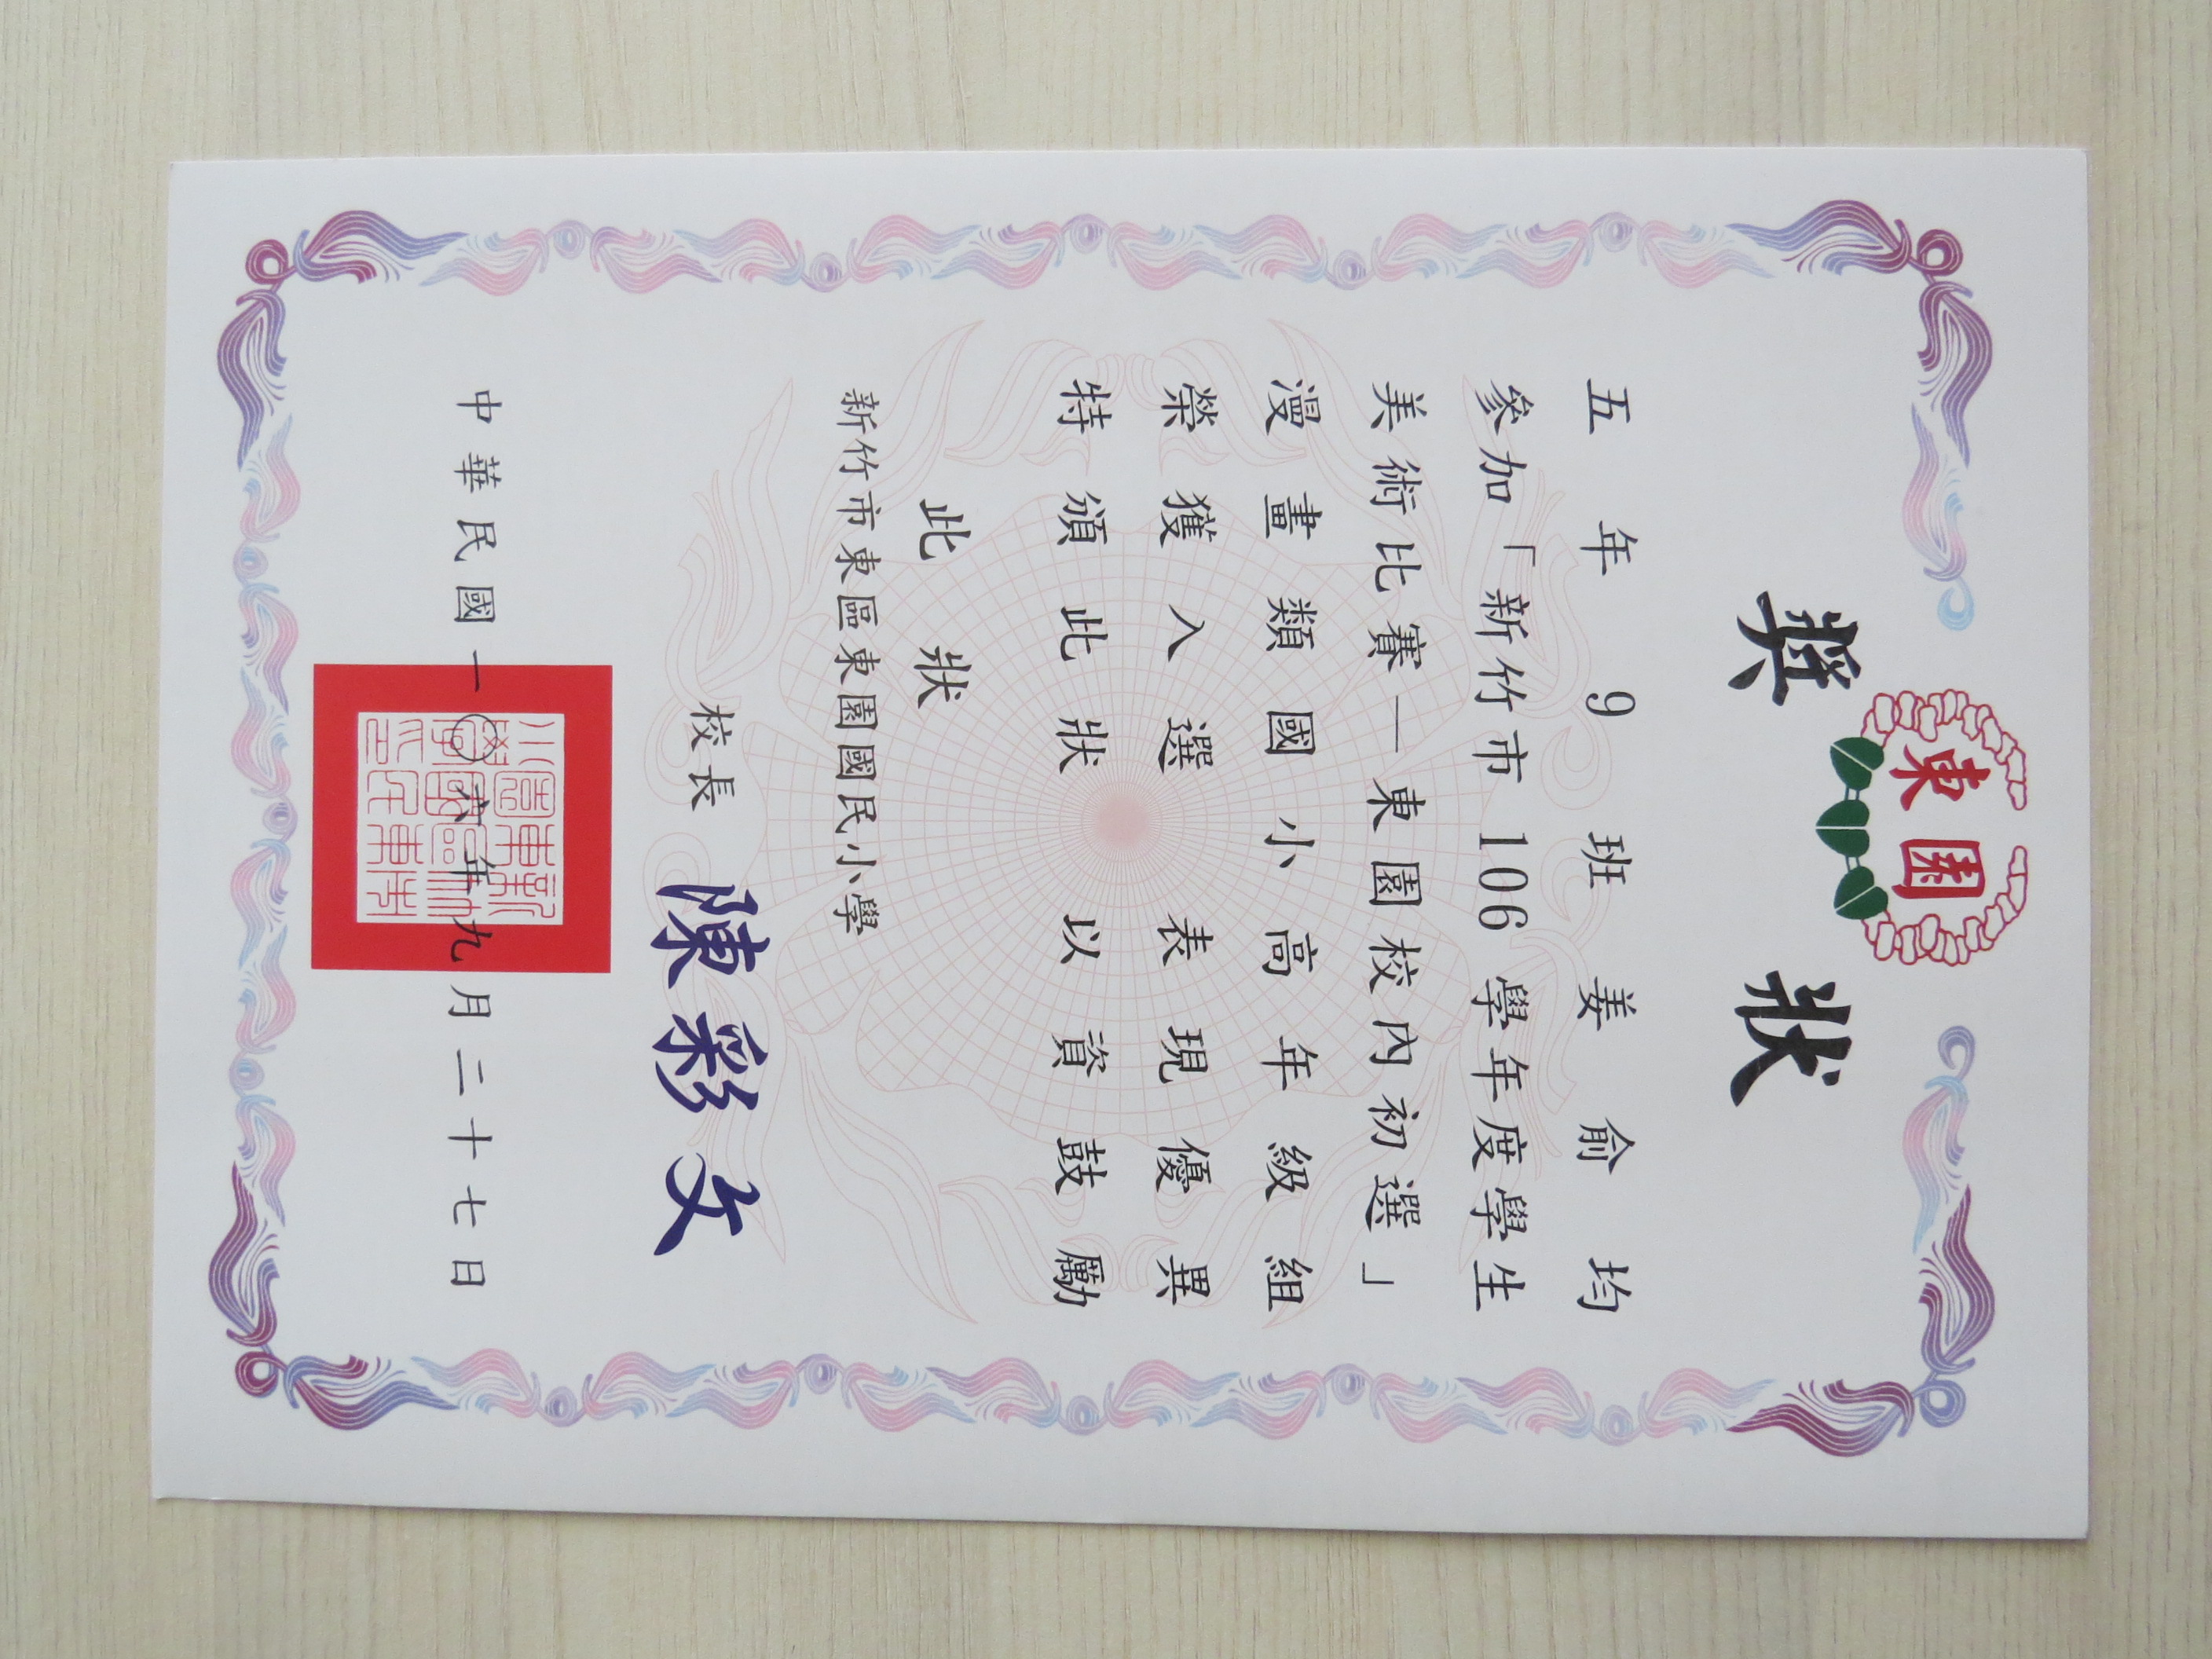 東園
獎狀
五年9班姜俞均
參加「新竹市106學年度學生
美術比賽—東園校內初選」
漫畫類國小高年級組
榮獲入選 表現優異
特頒此狀 以資鼓勵
此狀
新竹市東區東園國民小學
校長 陳彩文
中華民國一〇六年九月二十七日